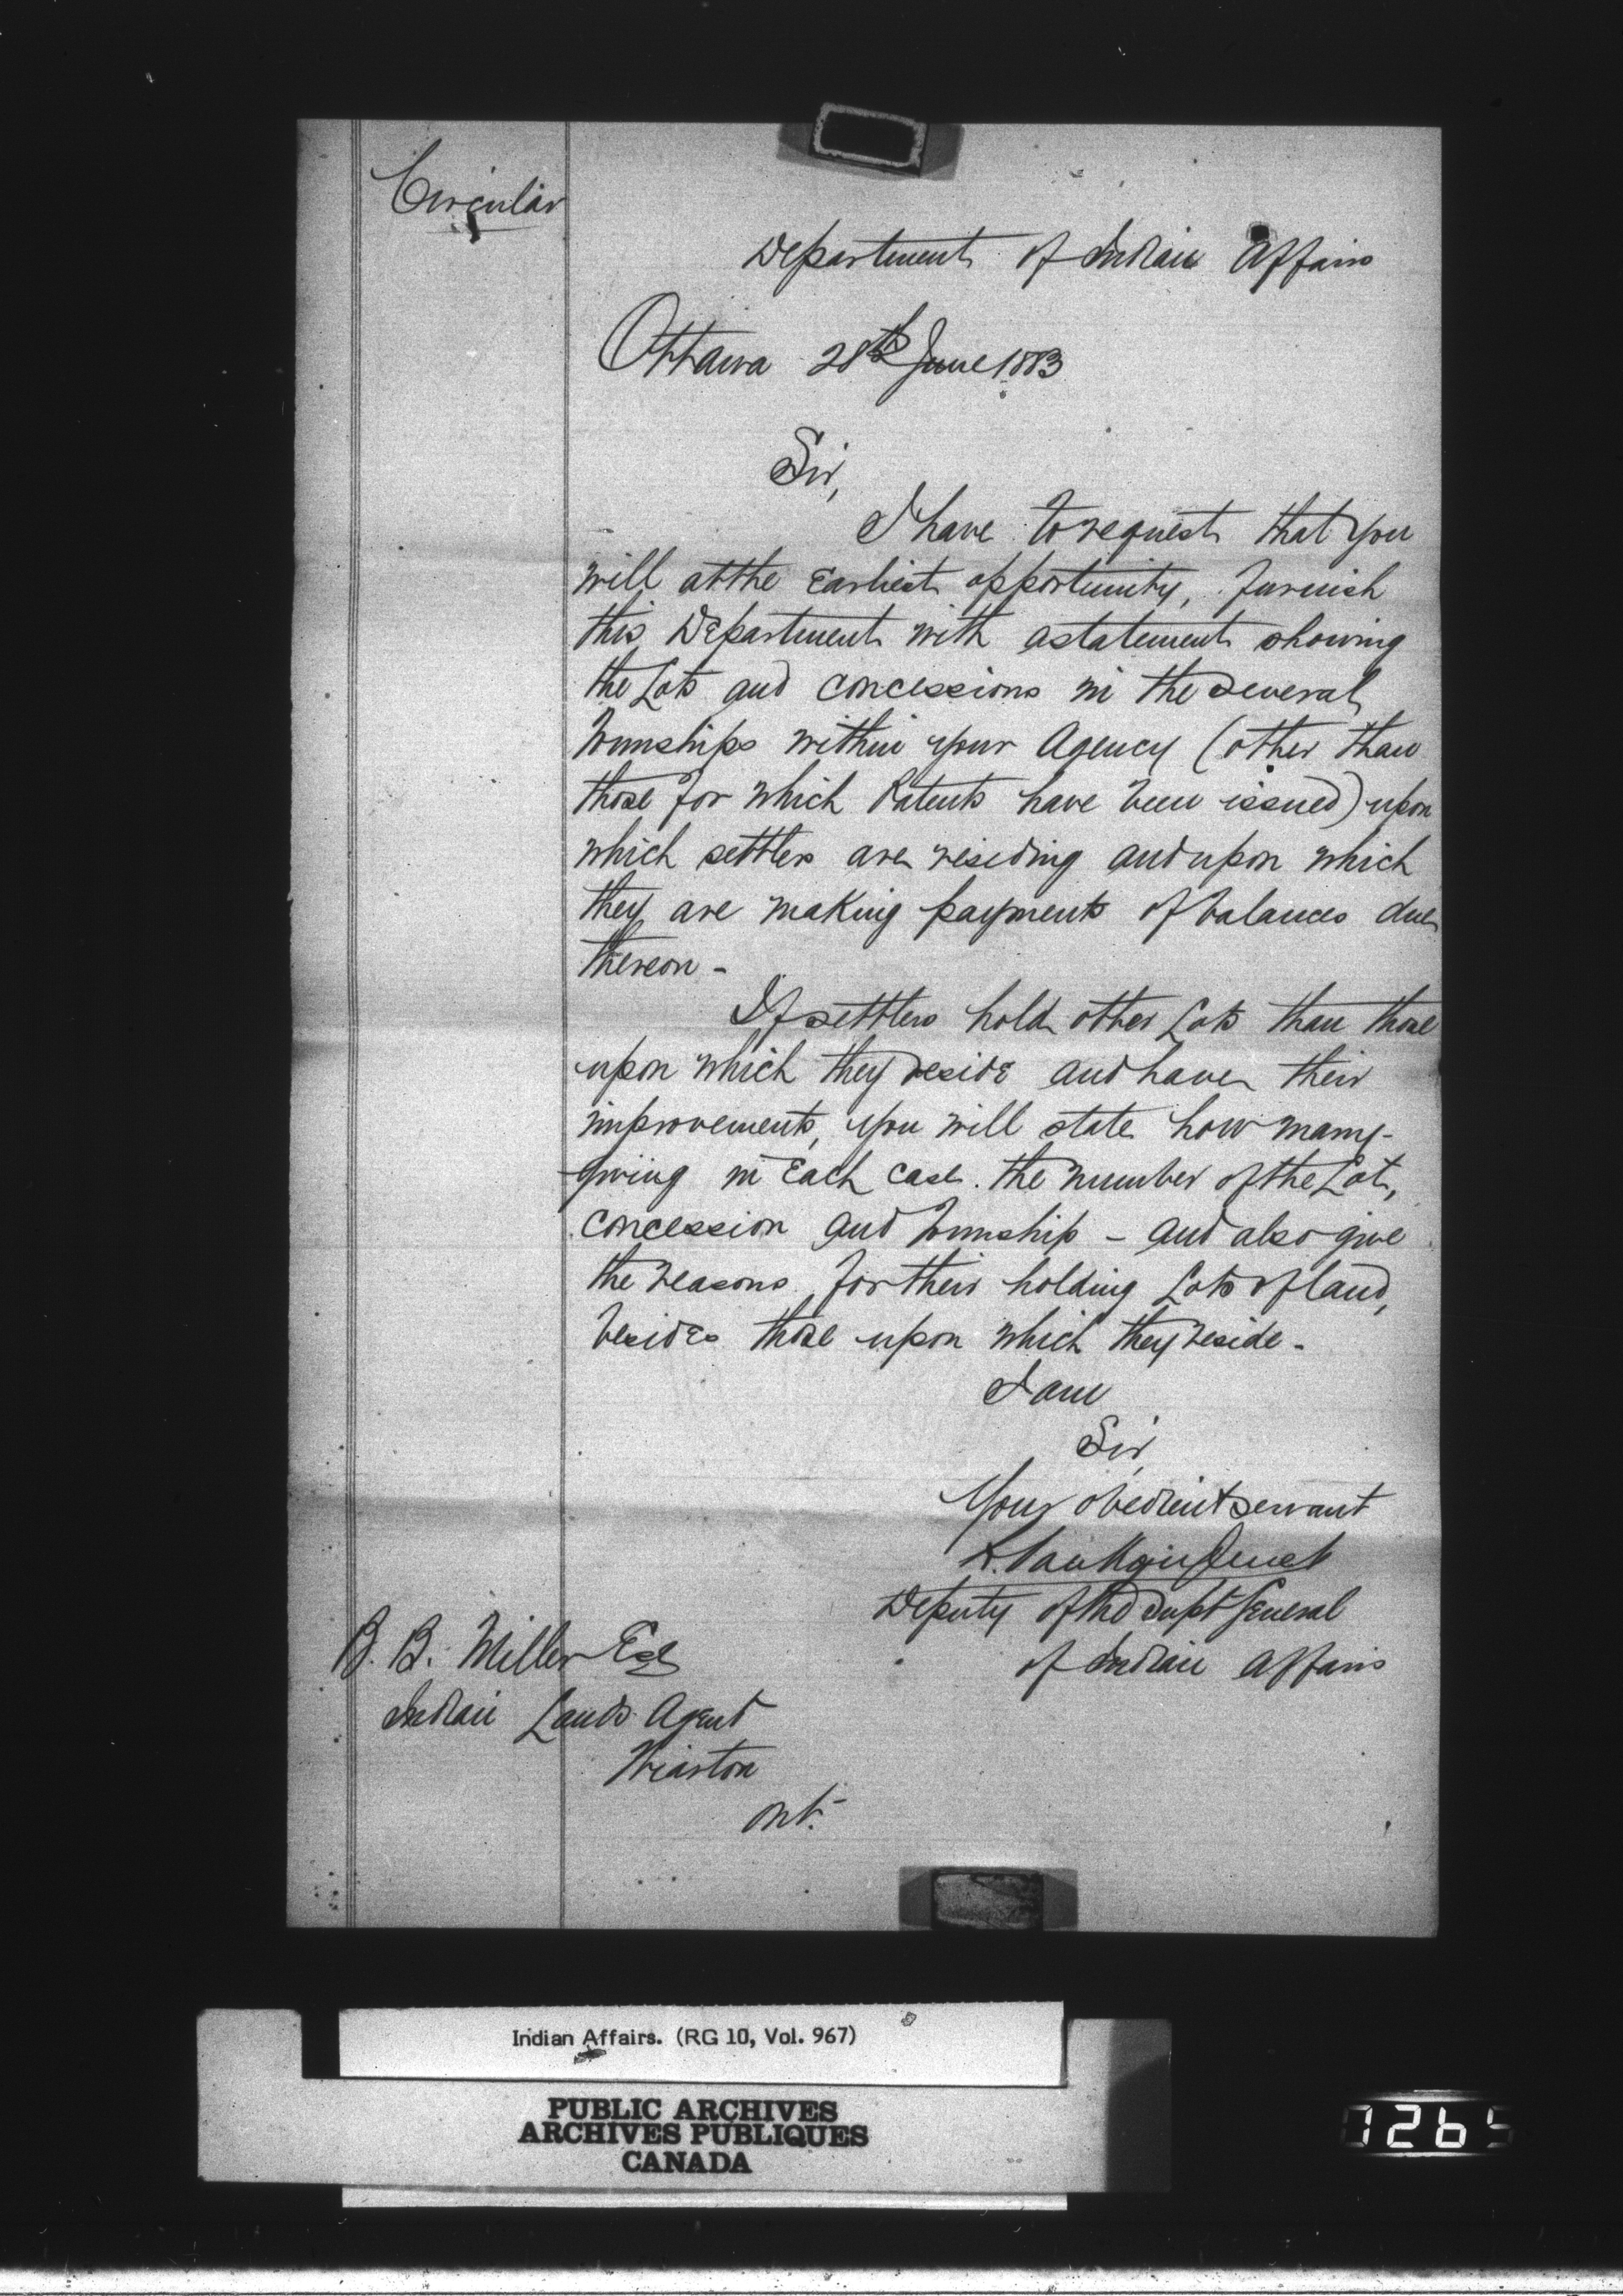 Circular
Department of Indian Affairs
Ottawa 28th June 1883
Sir,
I have to request that you
will at the Earliest opportunity, furnish
this Department with a statement showing
the Lots and concessions in the several
Townships within your Agency (other than
those for which Patents have been issued) upon
which settlers are residing and upon which
they are making payments of balances due
thereon -
If settlers hold other Lots than those
upon which they reside and have their
improvements, you will state how many -
giving in Each case the number of the Lot,
concession and Township - and also give
the reasons for their holding Lots of land,
besides those upon which they reside -
I am
Sir,
Your obedient servant
L. Vankoughnet
Deputy of the Supt General
of Indian Affairs
B. B. Miller Esq
Indian Lands Agent
Wiarton
Ont.
Indian Affairs. (RG 10, Vol. 967)
PUBLIC ARCHIVES
ARCHIVES PUBLIQUES
CANADA
1265